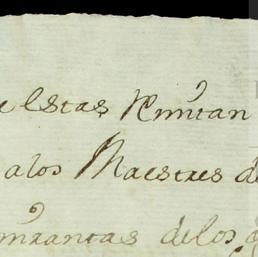 e estas Remitan
a los Maestres de
de los